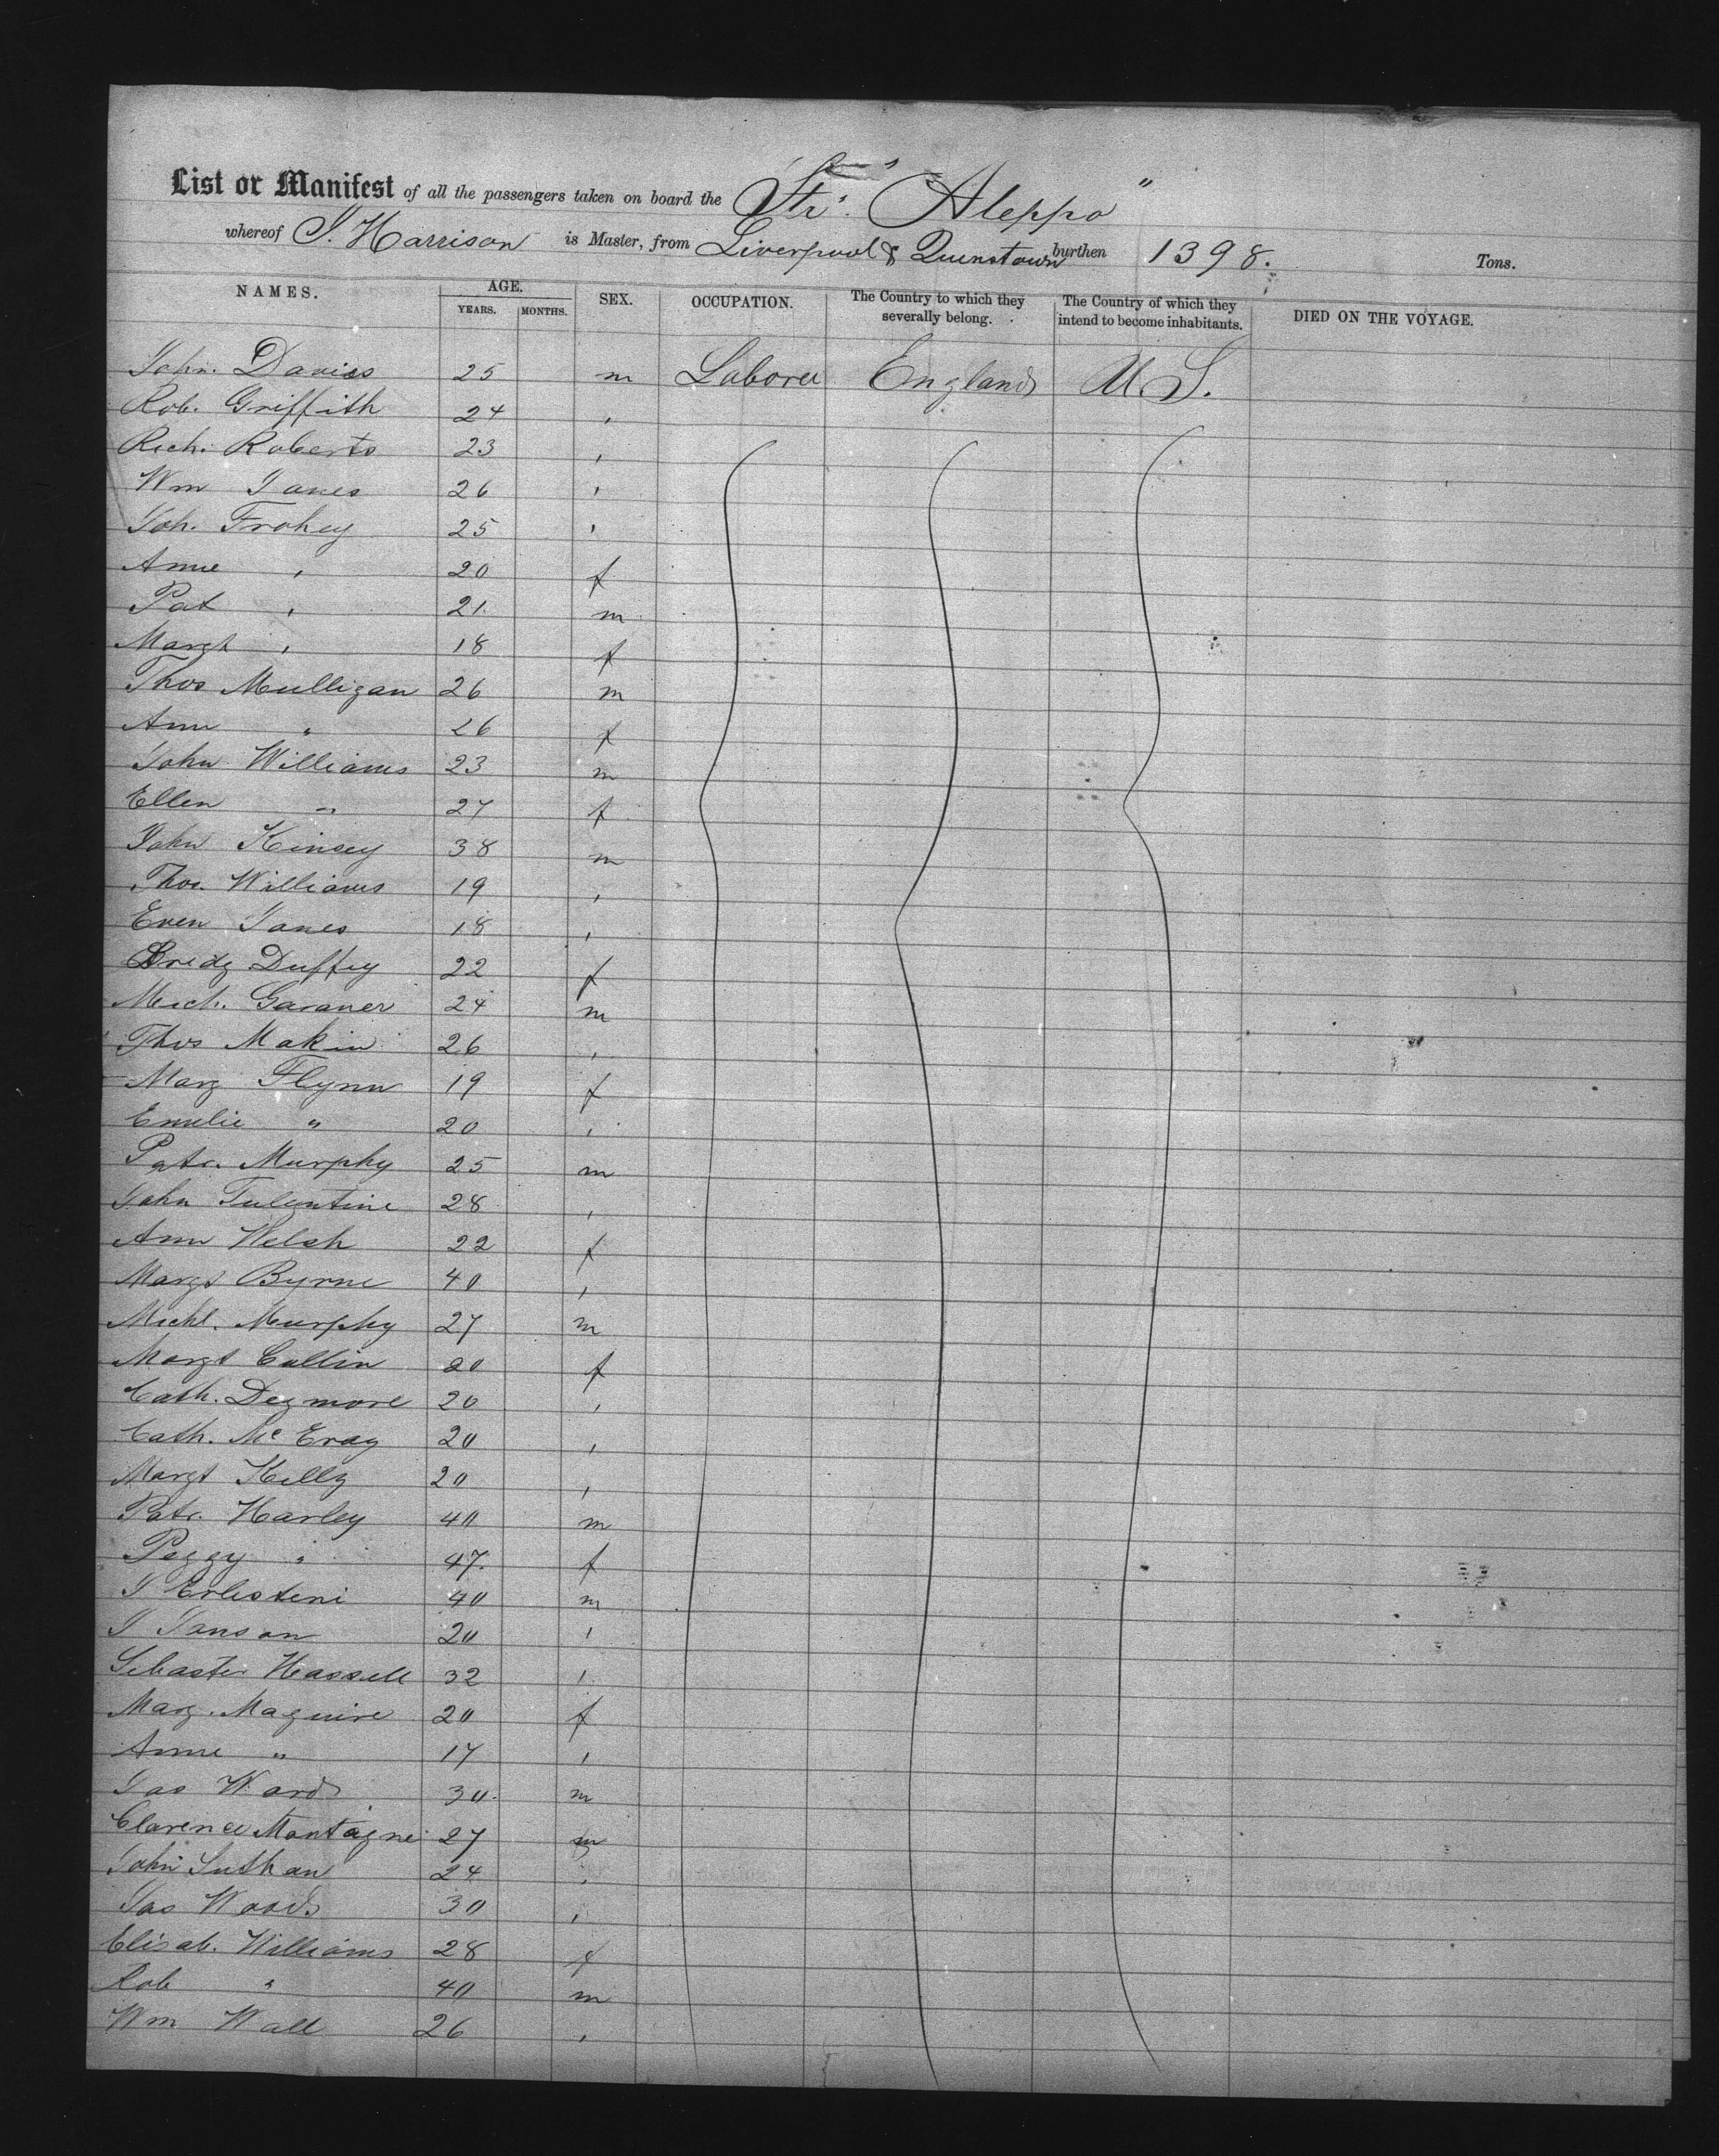 List or Manifest of all the passengers taken on board the Str. "Aleppo"
whereof J. Harrison is Master, from Liverpool & Quenstown burthen 1398. Tons.
NAMES. AGE. SEX. OCCUPATION. The Country to which they severally belong. The Country of which they intend to become inhabitants. DIED ON THE VOYAGE.
YEARS. MONTHS.
John. Daviss 25 m Laborer England U.S.
Rob. Griffith 24 "
Rich. Roberts 23 "
Wm Jones 26 "
Joh. Frahey 25 "
Anne " 20 f
Pat " 21 m
Margt " 18 f
Thos Mulligan 26 m
Ann " 26 f
John Williams 23 m
Ellen " 27 f
John Kinsey 38 m
Thos. Williams 19 "
Even Jones 18 "
Bridg Duffey 22 f
Mich. Garaner 24 m
Thos Makin 26 "
Marg Flynn 19 f
Emelie " 20 "
Patr. Murphy 25 m
John Tulentine 28 "
Ann Welsh 22 f
Margt Byrne 40 "
Michl. Murphy 27 m
Margt Cullin 20 f
Cath. Degmore 20 "
Cath. Mc Eray 20 "
Margt Kelly 20 "
Patr. Harley 40 m
Peggy " 47. f
J Erlesteni 40 m
J Janson 20 "
Sebaster Hassell 32 "
Marg. Maguire 20 f
Anne " 17 "
Jas Ward 30. m
Clarence Montagne 27 m
John Suthan 24 "
Jas Woods 30 "
Elisab. Williams 28 f
Rob " 40 m
Wm Wall 26 "